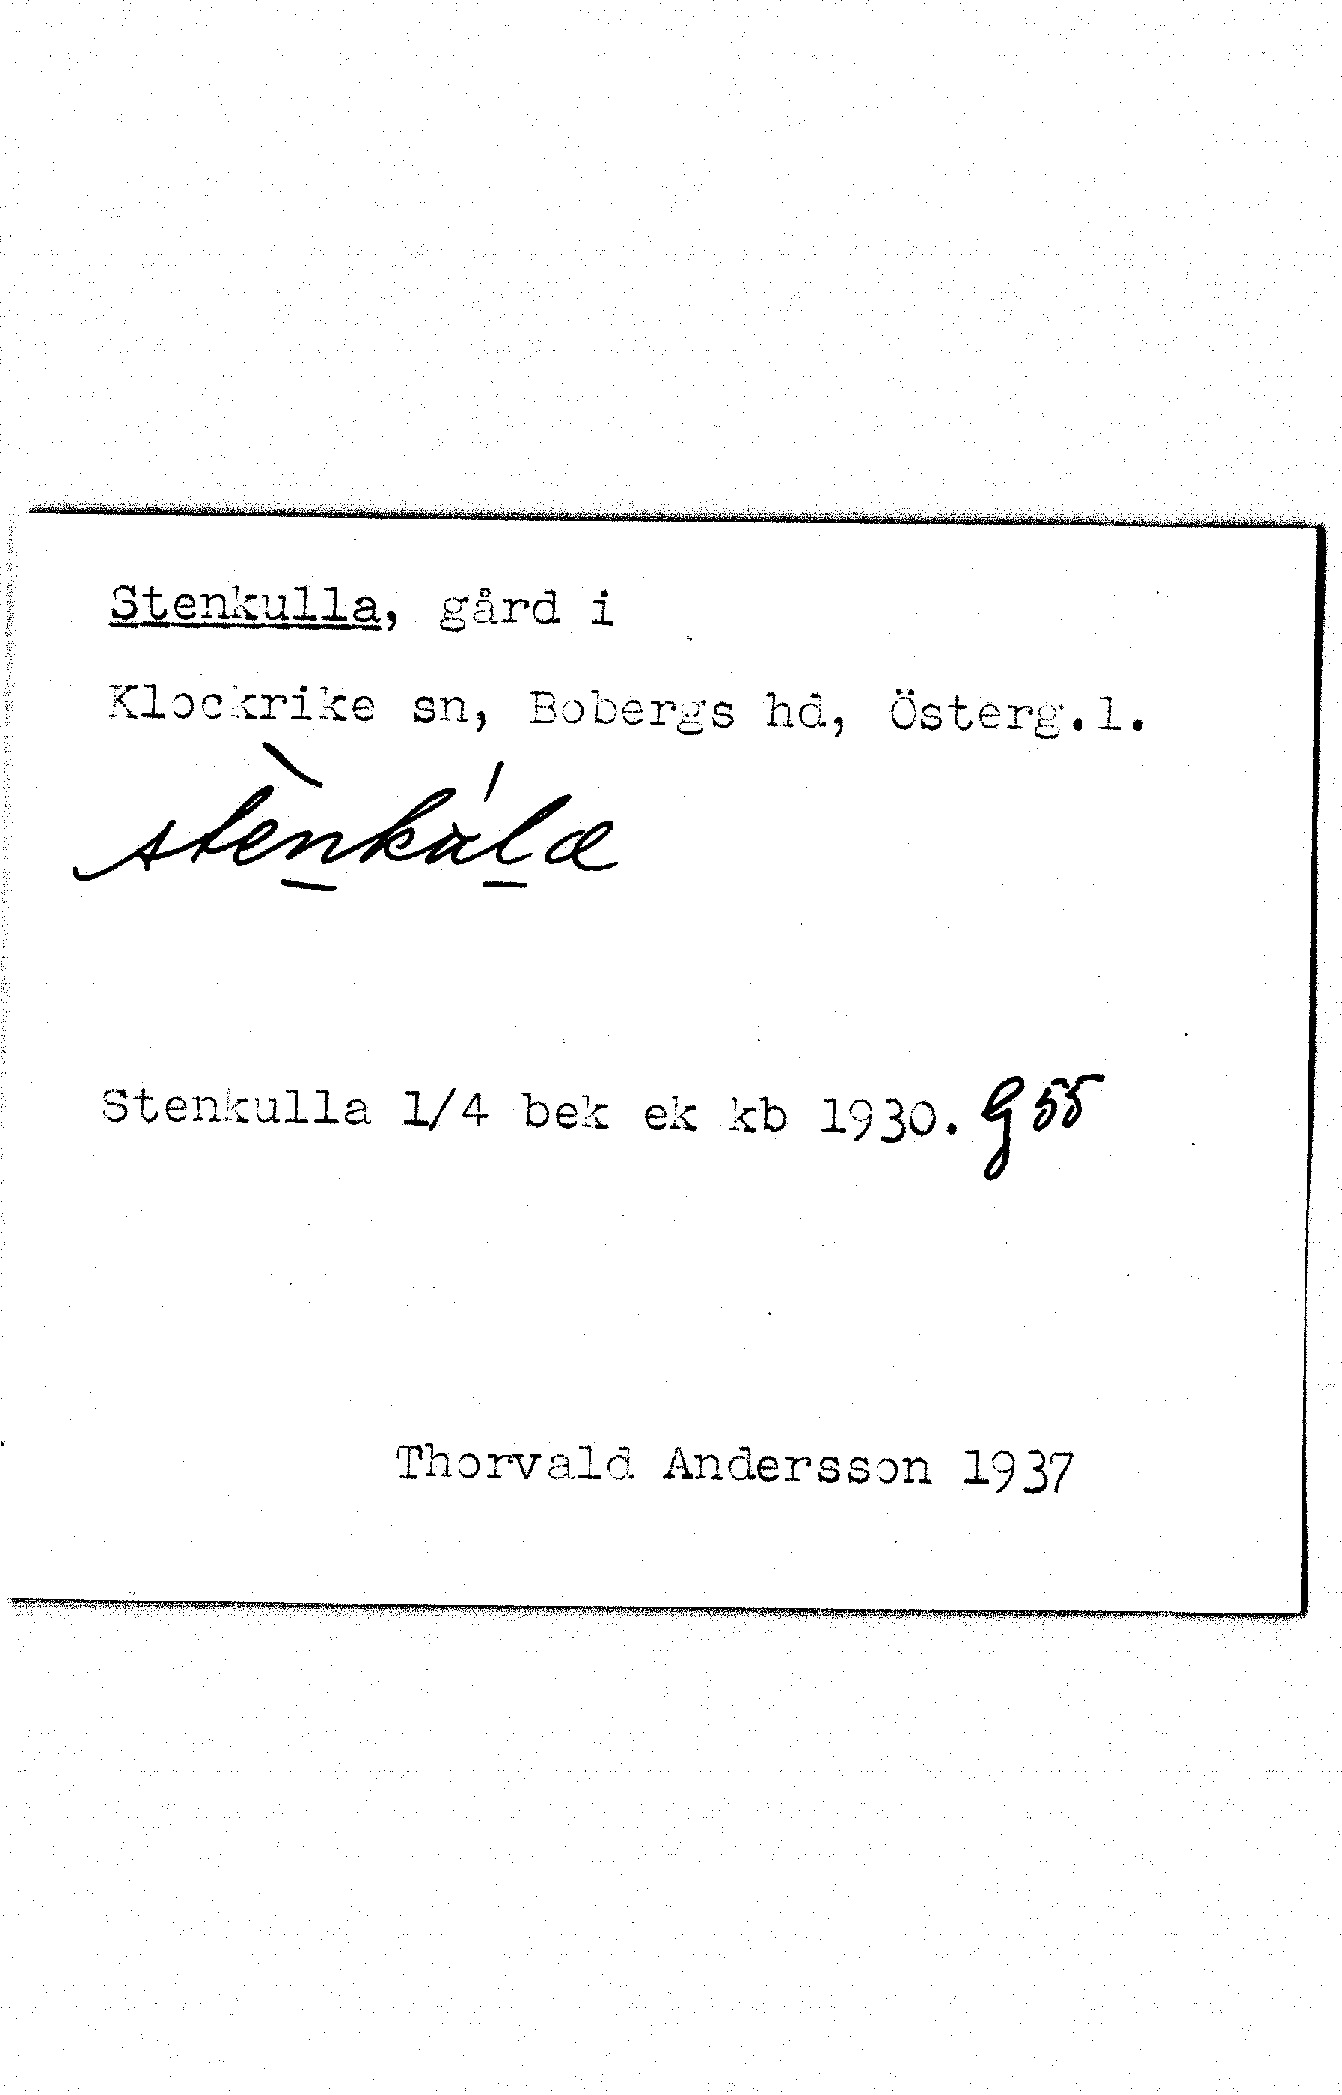 Stenkulla, gård i
Klockrike sn, Bobergs hd, Österg.l.
Stenkulla 1/4 bek ek kb 1930. G 55
Thorvald Andersson 1937